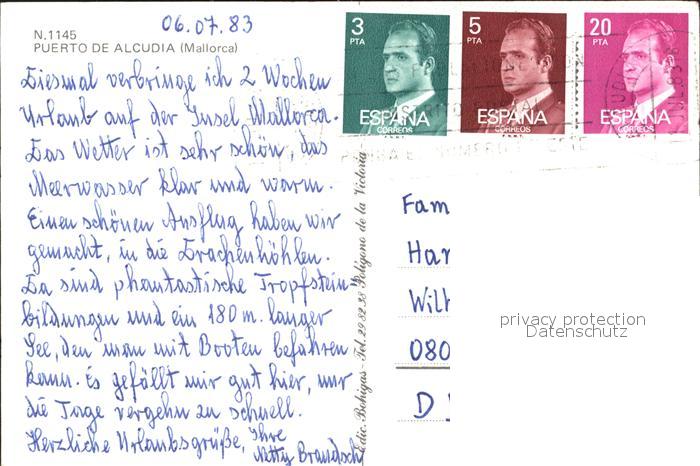 06.07.83
N.1145
PUERTO DE ALCUDIA (Mallorca)
Diesmal verbringe ich 2 Wochen
Urlaub auf der Insel Mallorca.
Das Wetter ist sehr schön, das
Meerwasser klar und warm.
Einen schönen Ausflug haben wir
gemacht, in die Drachenhöhlen.
Da sind phantastische Tropfstein-
bildungen und ein 180 m. langer
See, den man mit Booten befahren
kann. Es gefällt mir gut hier, nur
die Tage vergehn zu schnell.
Herzliche Urlaubsgrüße, Ihre
Netty Brandsch
Edic. Bohigas - Tel. 29 82 38 Polígono de la Victoria
3
PTA
ESPAÑA
CORREOS
5
PTA
ESPAÑA
CORREOS
20
PTA
ESPAÑA
CORREOS
Fam
Har
Wilh
080
D
privacy protection
Datenschutz